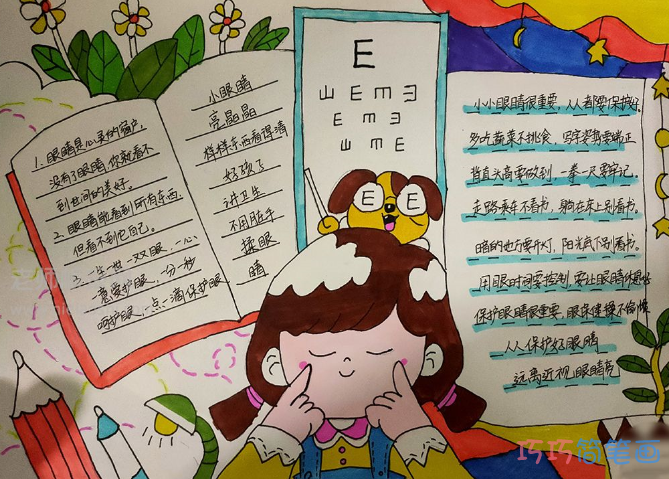 1. 眼睛是心灵的窗户,
没有了眼睛,你就看不
到世间的美好。
2. 眼睛能看到所有东西,
但看不到它自己。
一生一世一双眼,一心
一意爱护眼,一分一秒
呵护眼,一点一滴保护眼
小眼睛
亮晶晶
样样东西看得清
好孩子
讲卫生
不用脏手
揉眼
睛
E
E
E
小小眼睛很重要,人人都要保护好。
多吃蔬菜不挑食,写字姿势要端正
背直头高要做到,一拳一尺要牢记。
走路乘车不看书,躺在床上别看书。
暗的地方要开灯,阳光武下别看书。
用眼时间要控制,要让眼睛休息
保护眼睛很重要,眼保健操不偷懒
人人保护好眼睛
远离近视眼睛亮
巧巧简笔画